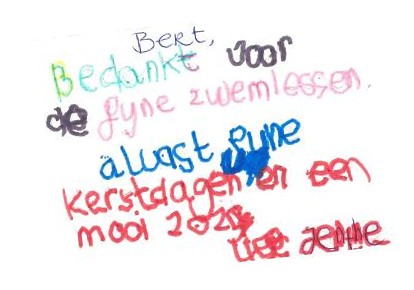 Bert,
Bedankt voor
de fyne zwemlessen.
alvast fyne
kerstdagen, en een
mooi
Jenthe